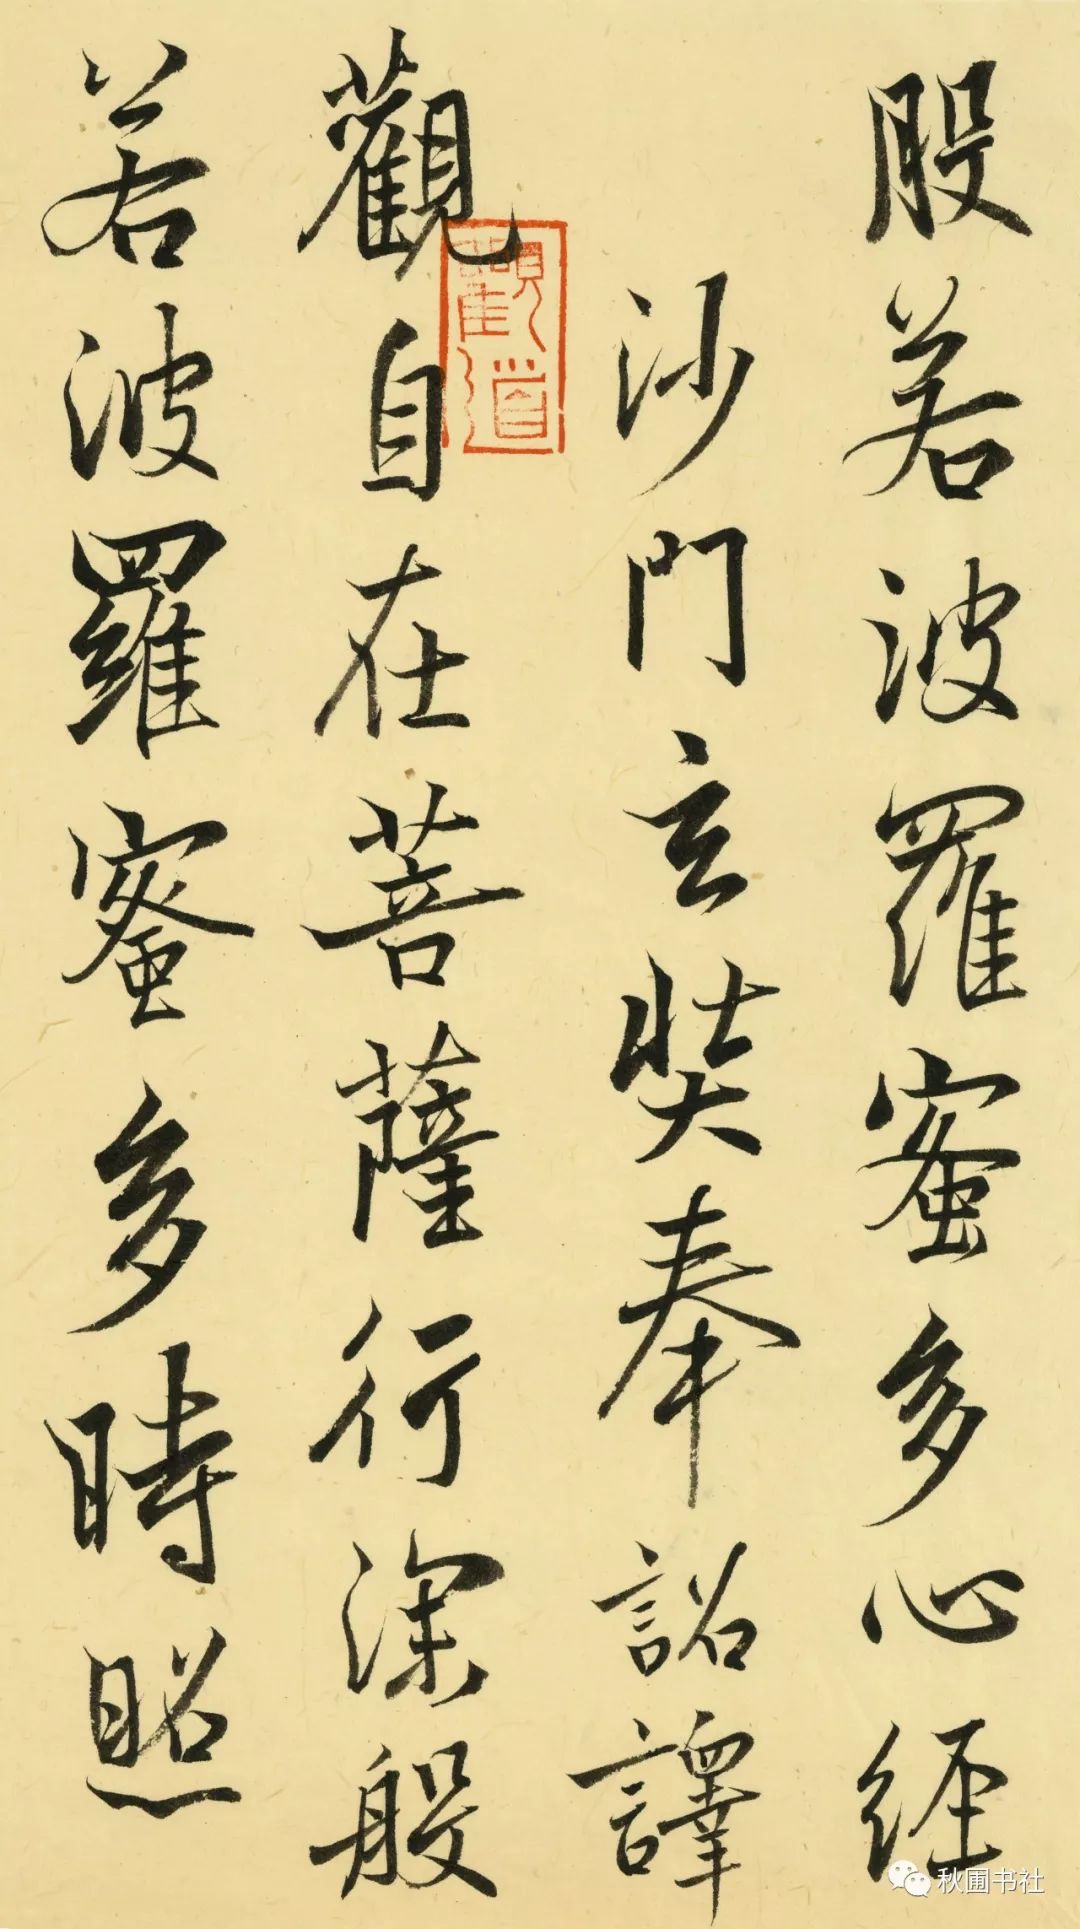 般若波羅蜜多心經
沙門玄奘奉詔譯
觀自在菩薩行深般
若波羅蜜多時照
觀道
秋圃书社